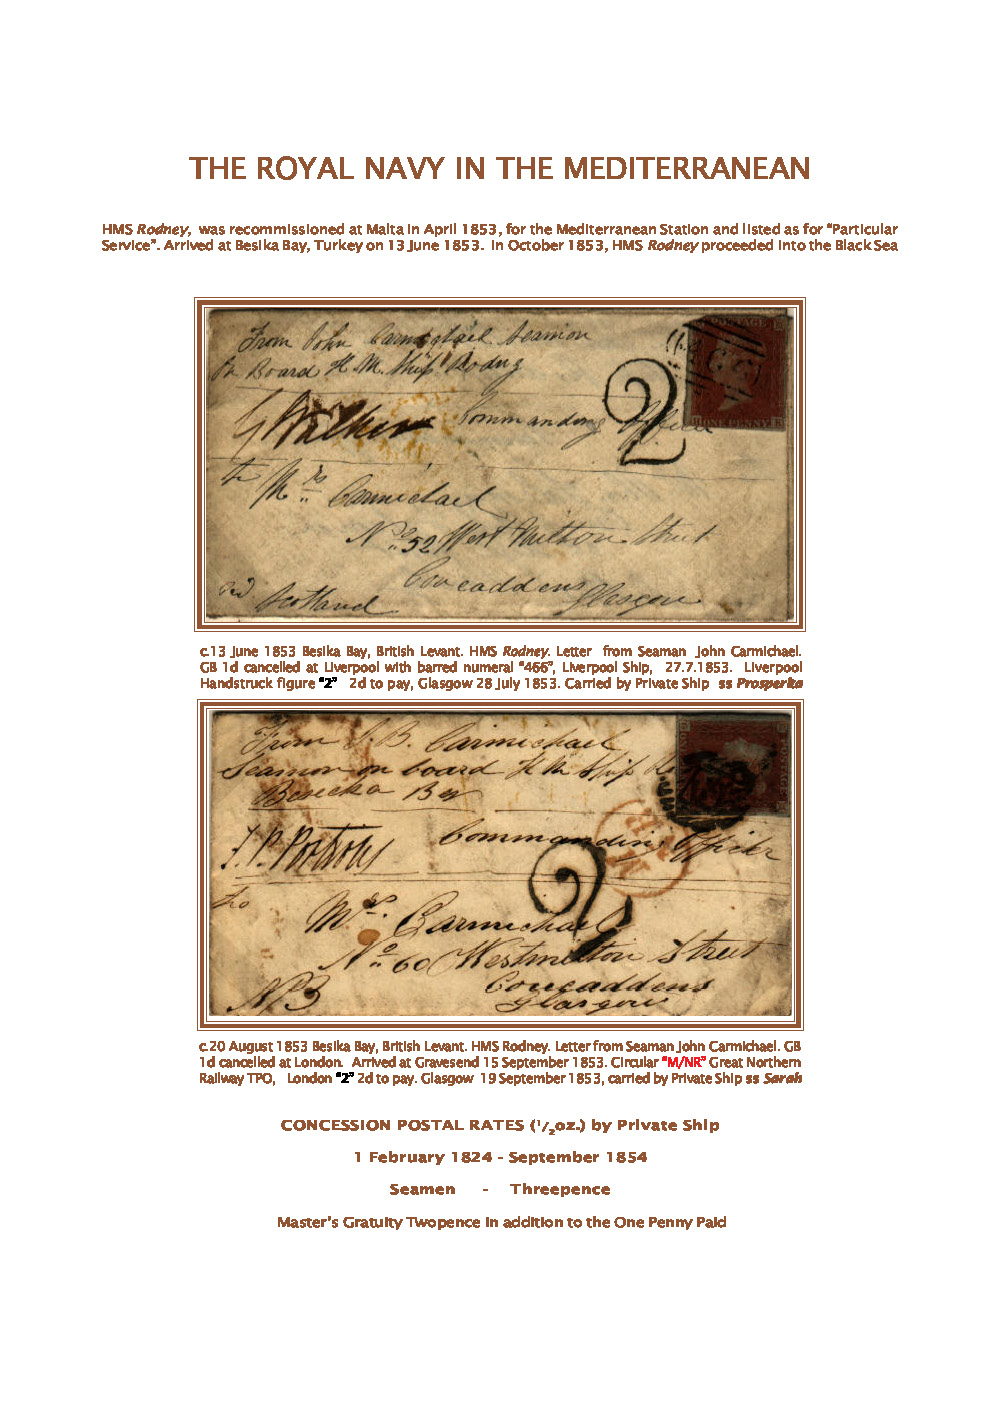 THE ROYAL NAVY IN THE MEDITERRANEAN
HMS Rodney, was recommissioned at Malta in April 1853, for the Mediterranean Station and listed as for “Particular
Service”. Arrived at Besika Bay, Turkey on 13 June 1853. In October 1853, HMS Rodney proceeded into the Black Sea
From John Carmichael Seamon
On Board H. M. Ship Rodny
Commanding Officer
to Mrs Carmichael
No 52 West Milton Street
Coucaddens Glasgow
Scotland
2
POSTAGE
ONE PENNY
c.13 June 1853 Besika Bay, British Levant. HMS Rodney. Letter from Seaman John Carmichael.
GB 1d cancelled at Liverpool with barred numeral “466”, Liverpool Ship, 27.7.1853. Liverpool
Handstruck figure “2” 2d to pay, Glasgow 28 July 1853. Carried by Private Ship ss Prosperita
From J. B. Carmichael
Seamon on board H M Ship
Besecka Bay
Commanding Officer
to
Mrs. Carmichael
No 60 Westmilton Street
Coucaddens
Glasgow
NB
2
c.20 August 1853 Besika Bay, British Levant. HMS Rodney. Letter from Seaman John Carmichael. GB
1d cancelled at London. Arrived at Gravesend 15 September 1853. Circular “M/NR” Great Northern
Railway TPO, London “2” 2d to pay. Glasgow 19 September 1853, carried by Private Ship ss Sarah
CONCESSION POSTAL RATES (1/2oz.) by Private Ship
1 February 1824 - September 1854
Seamen - Threepence
Master’s Gratuity Twopence in addition to the One Penny Paid